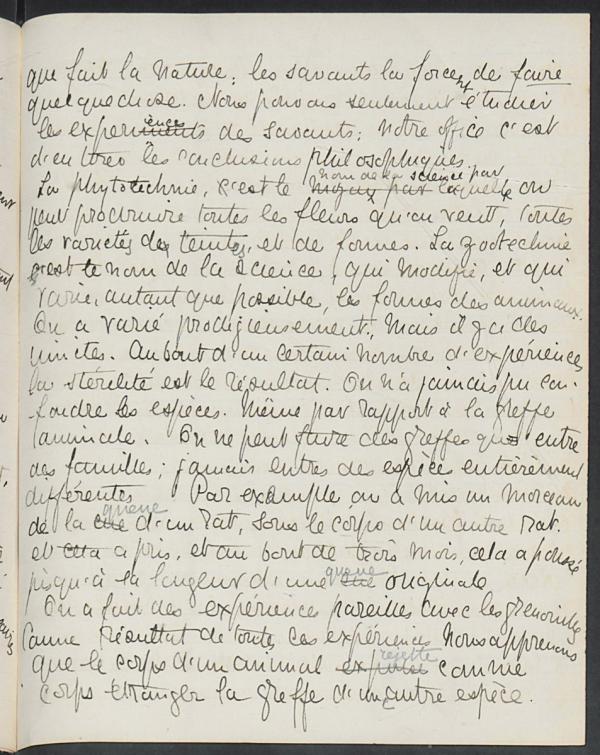 que fait la Nature; les savants la forcent de faire
quelque chose. Nous pouvons seulement étudier
les expériences des savants; notre office c'est
d'en tirer les conclusions philosophiques.
La phytotechnie, c'est le nom de la science par laquelle on
peut produire toutes les fleurs qu'on veut, toutes
les variétés de teintes, et de formes. La zootechnie
est le nom de la science, qui modifie, et qui
varie, autant que possible, les formes des animaux.
On a varié prodigieusement, mais il y a des
limites. Au bout d'un certain nombre d'expériences
la stérilité est le résultat. On n'a jamais pu con-
fondre les espèces. Même par rapport à la greffe
animale. On ne peut faire des greffes qu' entre
des familles; jamais entres des espèces entièrement
différentes Par example on a mis un morceau
de la queue d'un rat, sous le corps d'un autre rat.
et cela a pris, et au bout de trois mois, cela a poussé
jusqu'à la longeur d'une queue originale
On a fait des expériences pareilles avec les grenouilles
Comme résultat de toutes ces expériences nous apprenons
que le corps d'un animal rejette comme
corps étranger la greffe d'un autre espèce.